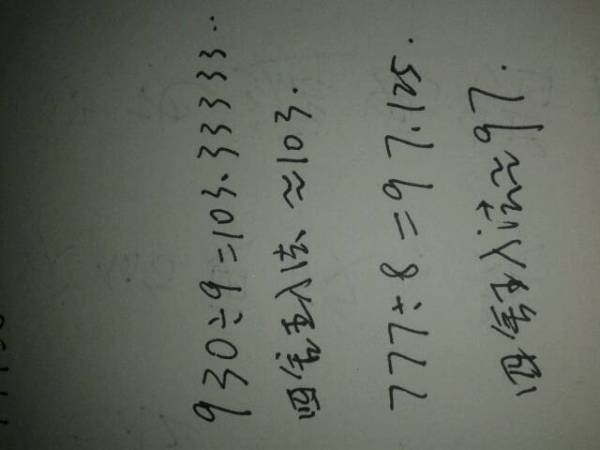 930÷9=103.33333..
四舍五入法 ≈103.
777÷8=97.125.
四舍五入法≈97.